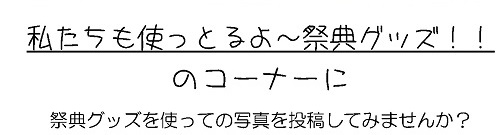 私たちも使っとるよ～祭典グッズ！！
のコーナーに
祭典グッズを使っての写真を投稿してみませんか？